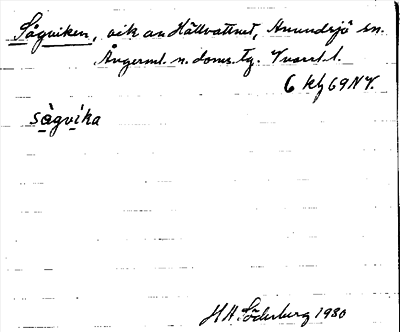 Sågviken, vik av Hällvattnet, Anundsjö sn.
Ångerml. n. doms. tg. V
6 kbg 69 NV.
sàgvika
HH Söderberg 1930